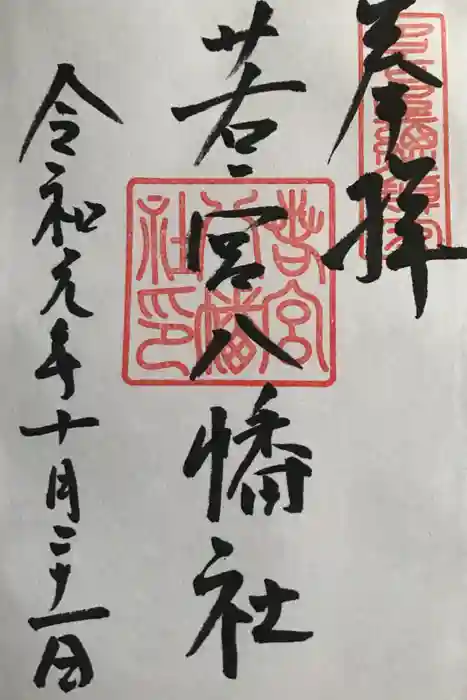 奉拝
若宮八幡社
若宮八幡社印
令和元年十月二十一日